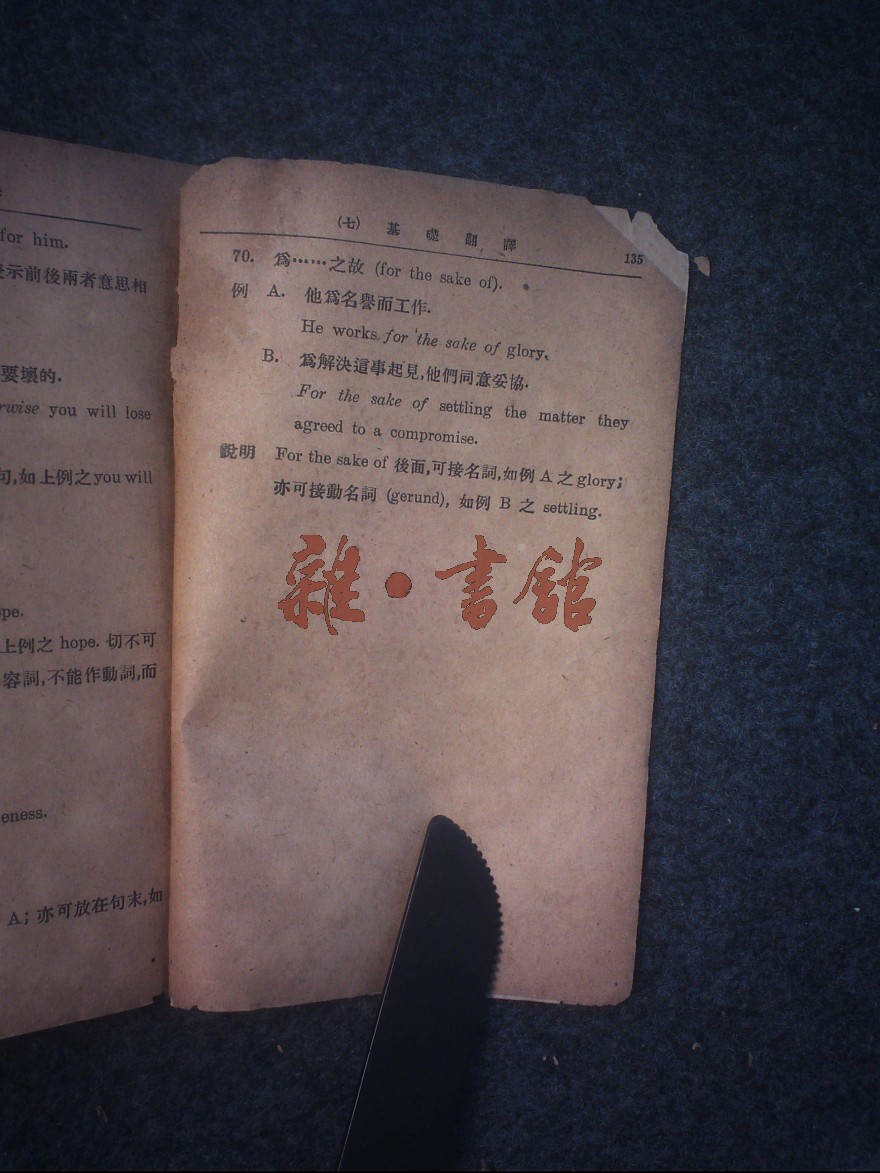 for him.
示前後兩者意思相
要壞的.
rwise you will lose
句,如上例之 you will
pe.
上例之 hope. 切不可
容詞,不能作動詞,而
eness.
A; 亦可放在句末,如
(七) 基礎翻譯
135
70. 爲……之故 (for the sake of).
例 A. 他爲名譽而工作.
He works for the sake of glory.
B. 爲解決這事起見,他們同意妥協.
For the sake of settling the matter they
agreed to a compromise.
說明 For the sake of 後面,可接名詞,如例 A 之 glory;
亦可接動名詞 (gerund), 如例 B 之 settling.
雜·書館